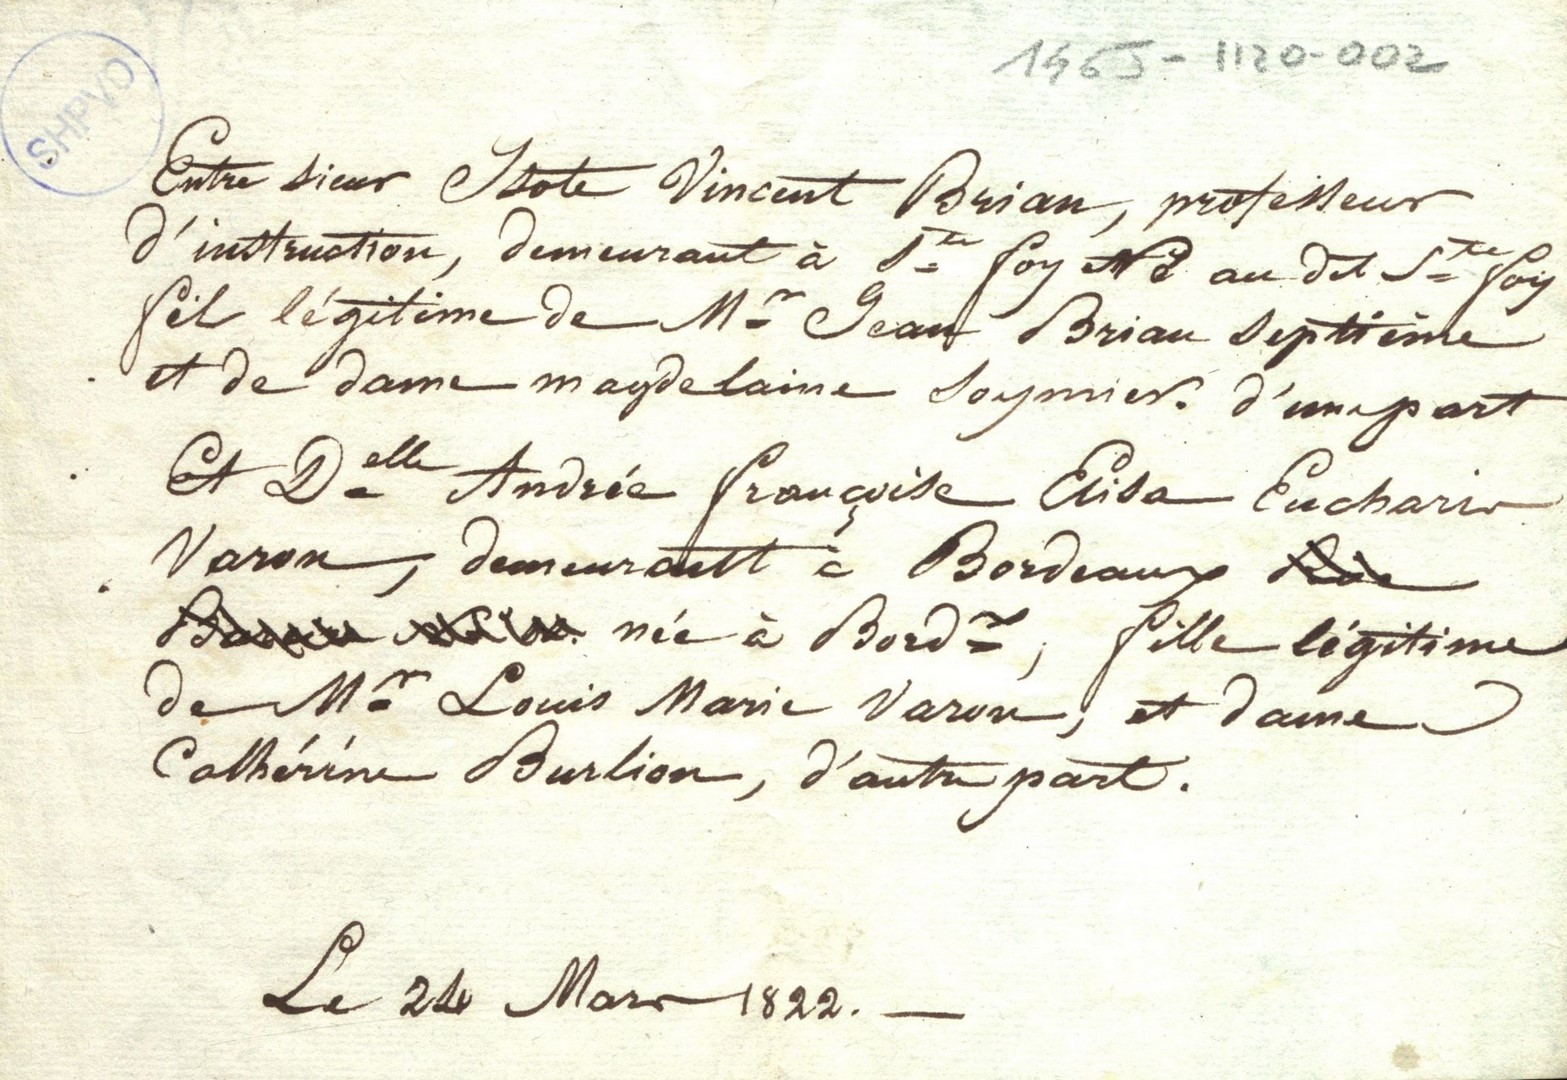 SHPVD
146J-1120-002
Entre sieur Isote Vincent Brian, professeur
d'instruction, demeurant à Ste foy Né au dit Ste foy
fil légitime de Mr Jean Brian septième
et de dame magdelaine Soymier. d'une part
Et Delle Andrée françoise Elisa Eucharis
Varon, demeurant à Bordeaux Rue
née à Bordx, fille légitime
de Mr Louis Marie Varon, et dame
Cathérine Burlion, d'autre part.
Le 24 Mars 1822. —